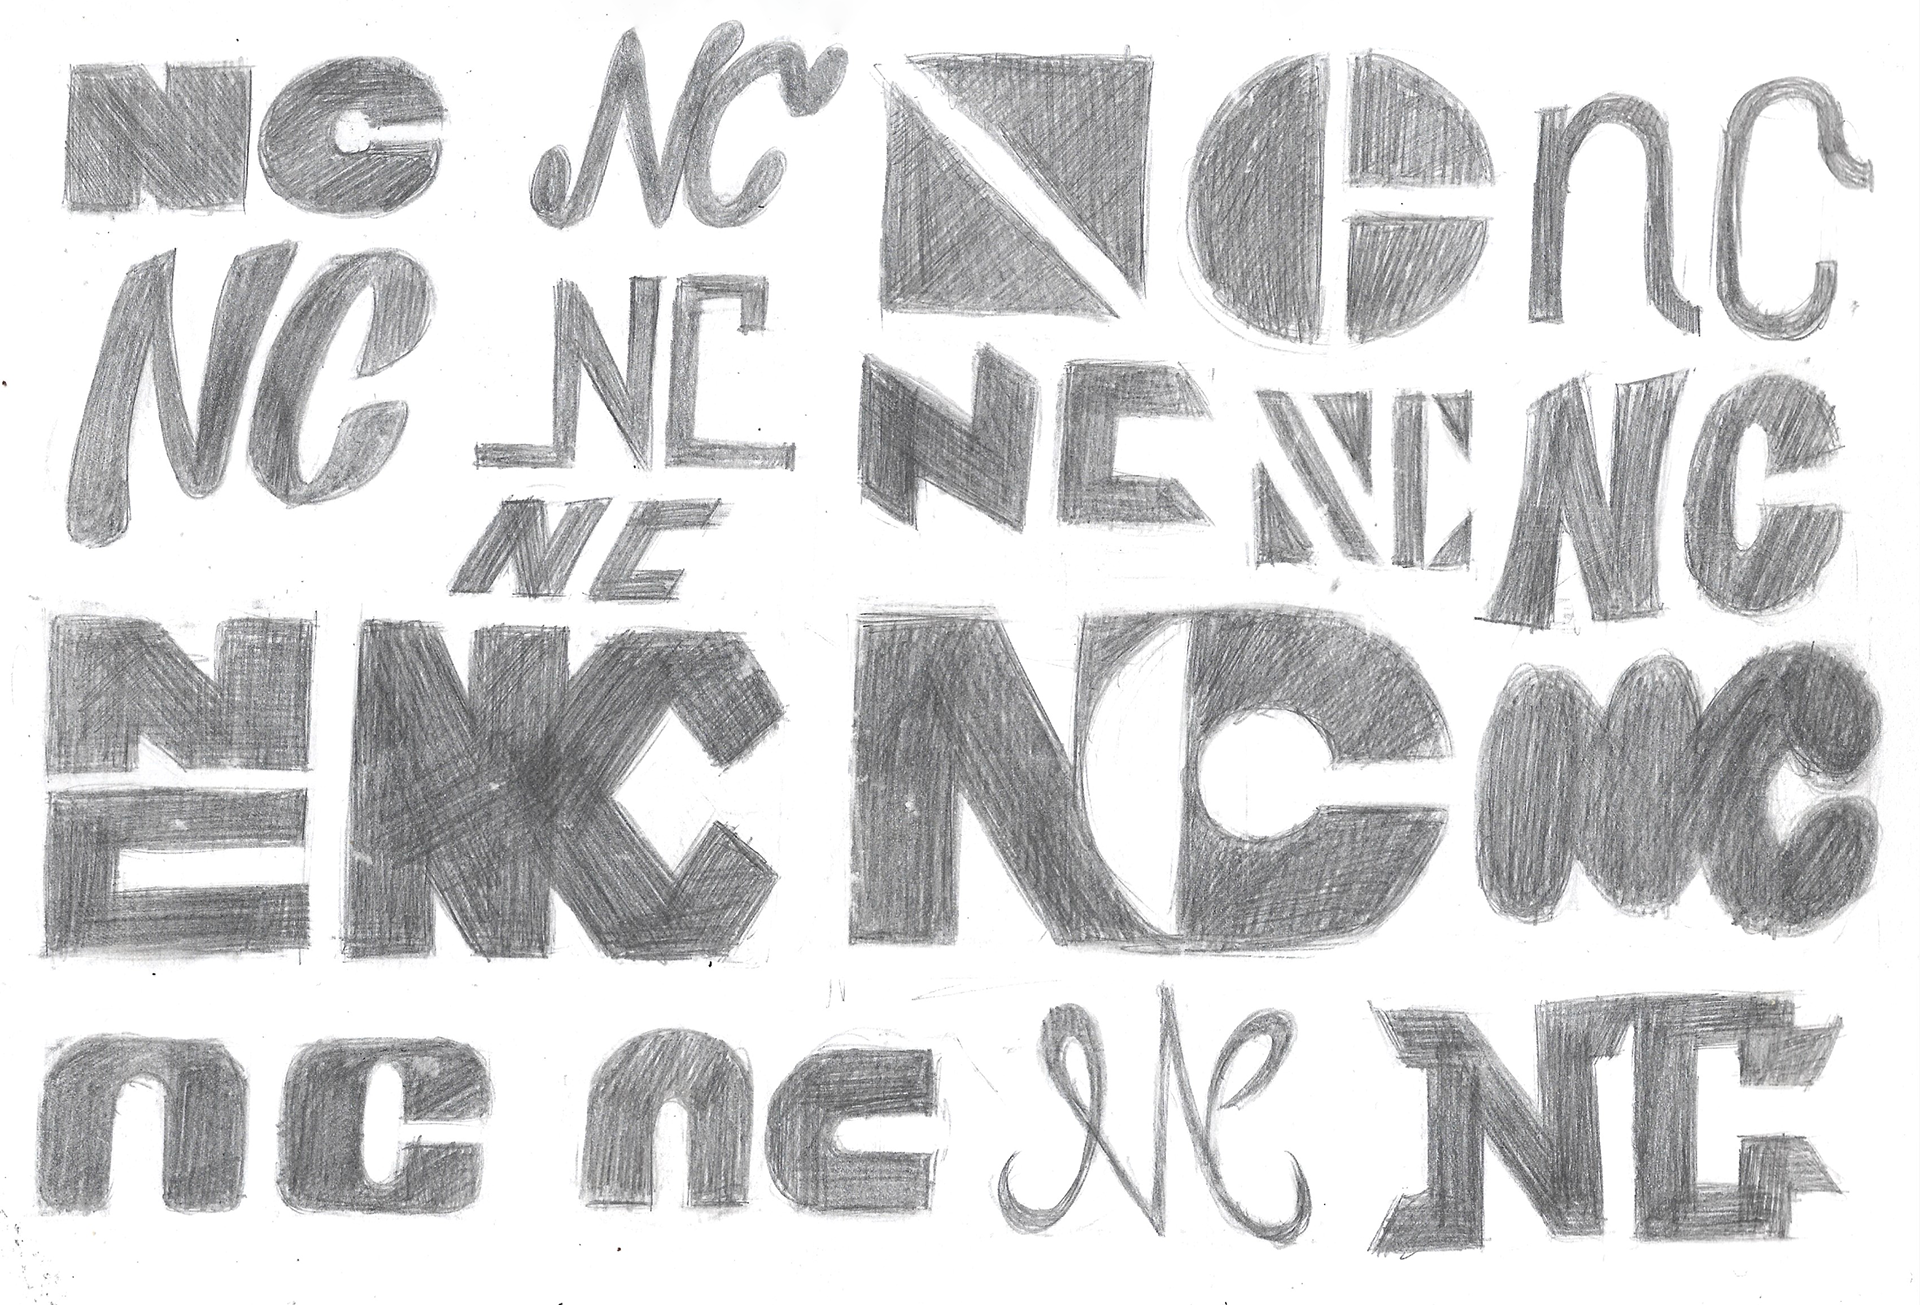 NC NC NC nc
NC NC NC NC NC
NC
N
C NC NC NC
nc nc NC NC